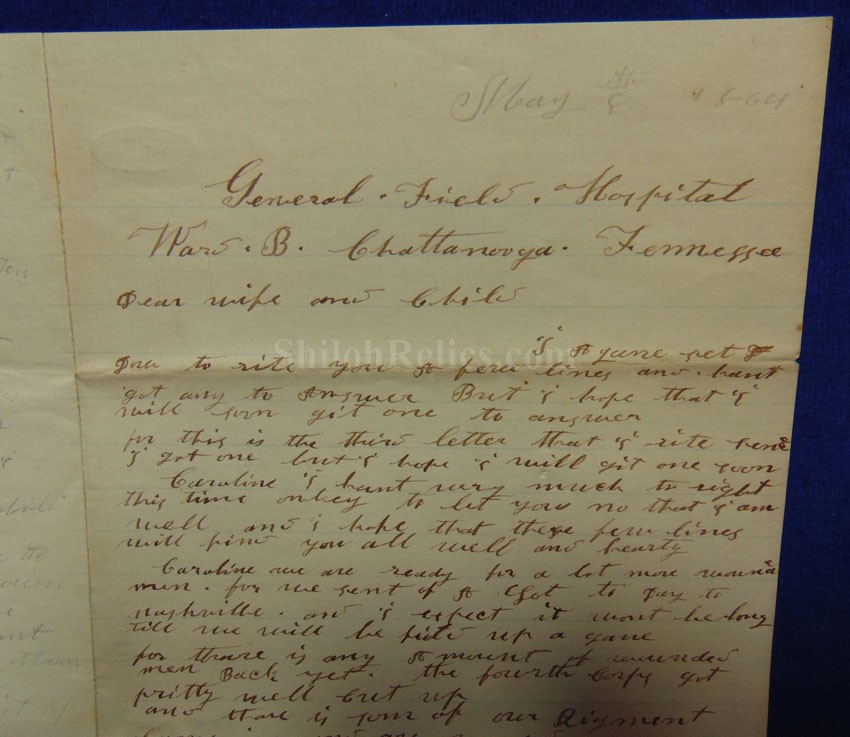 May 8th 1864
General Field Hospital
Ward. B. Chattanooga. Tennessee
Dear wife and Child
I A gane set
Dow to rite you A few lines and hant
got any to Answer But I hope that I
will soon git one to answer
for this is the third letter that I rite
I got one but I hope I will git one soon
Caroline I hant very much to right
this time onley to let you no that I am
well and I hope that these few lines
will find you all well and hearty
Caroline we are ready for a lot more
men. for we sent of A to Day to
nashville. and I expect it wont be long
till we will be up a gane
for thare is any A mount of wounded
men Back yet. the fourth Corps got
pritty well cut up
and thare is som of our Rigment
ShilohRelics.com